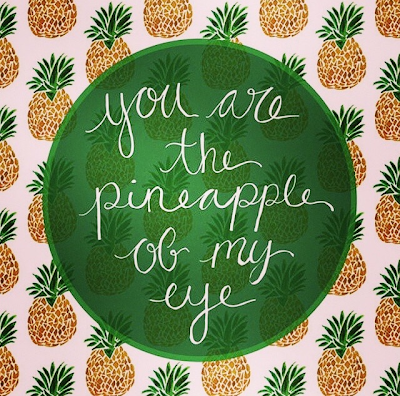 you are
the
pineapple
of my
eye